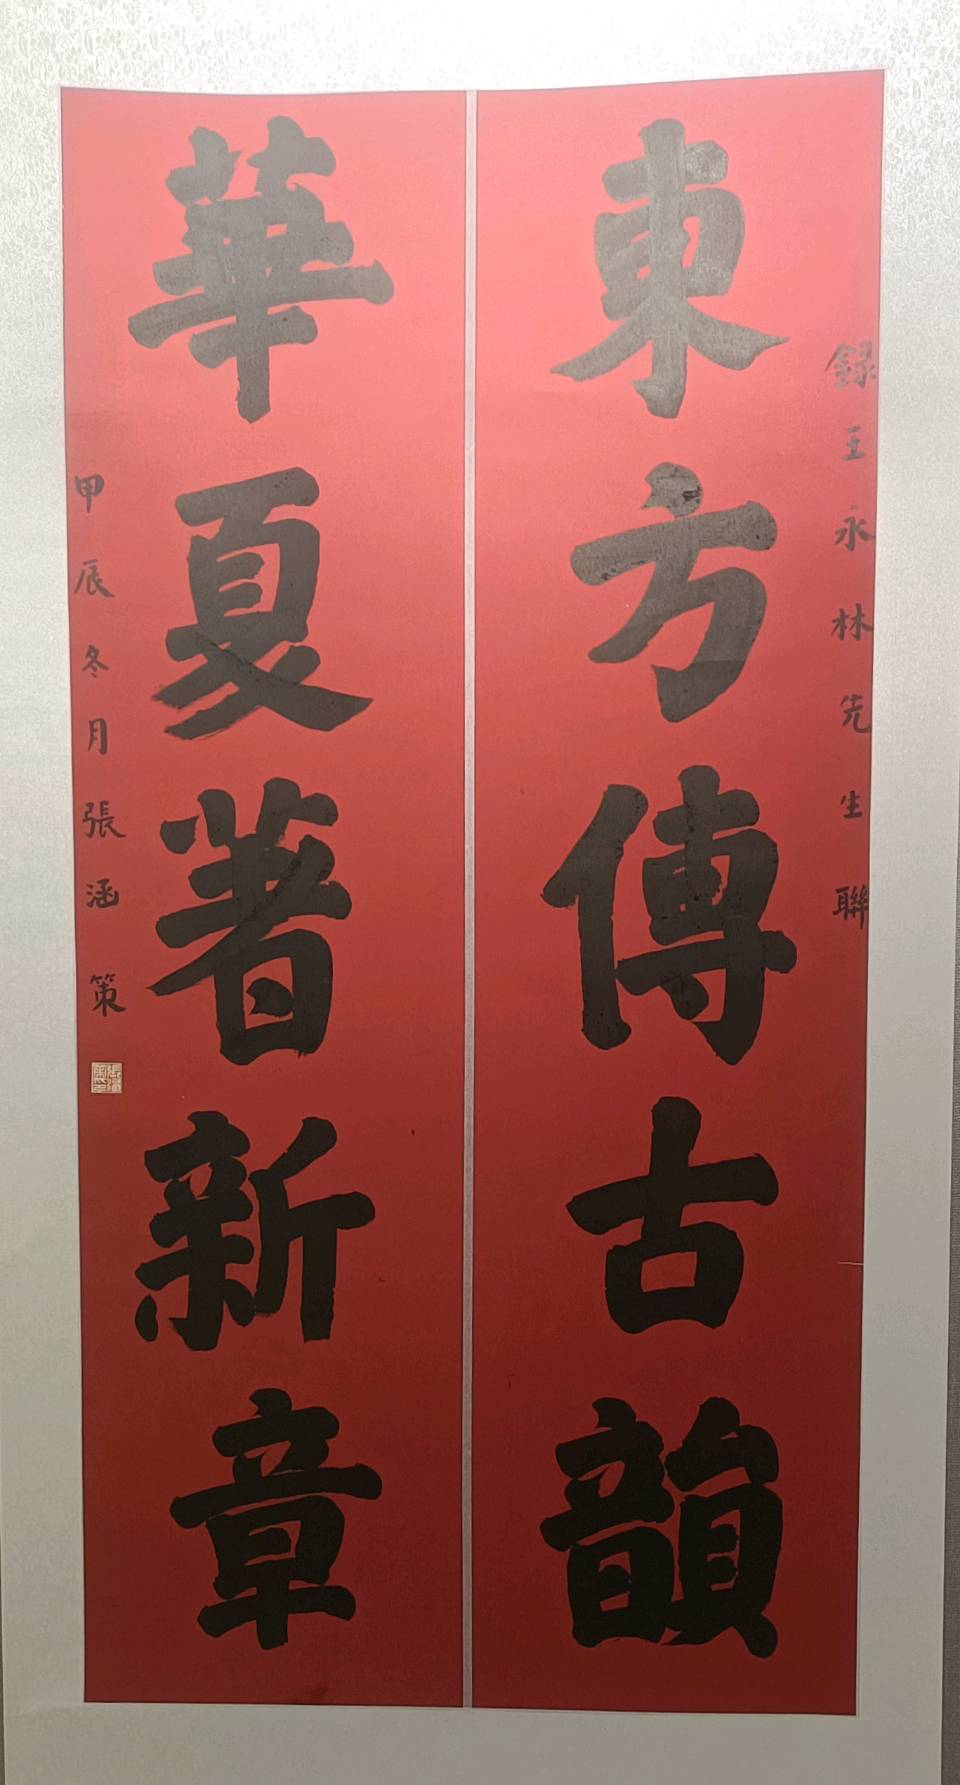 錄王永林先生聯
東方傳古韻
華夏著新章
甲辰冬月張涵策